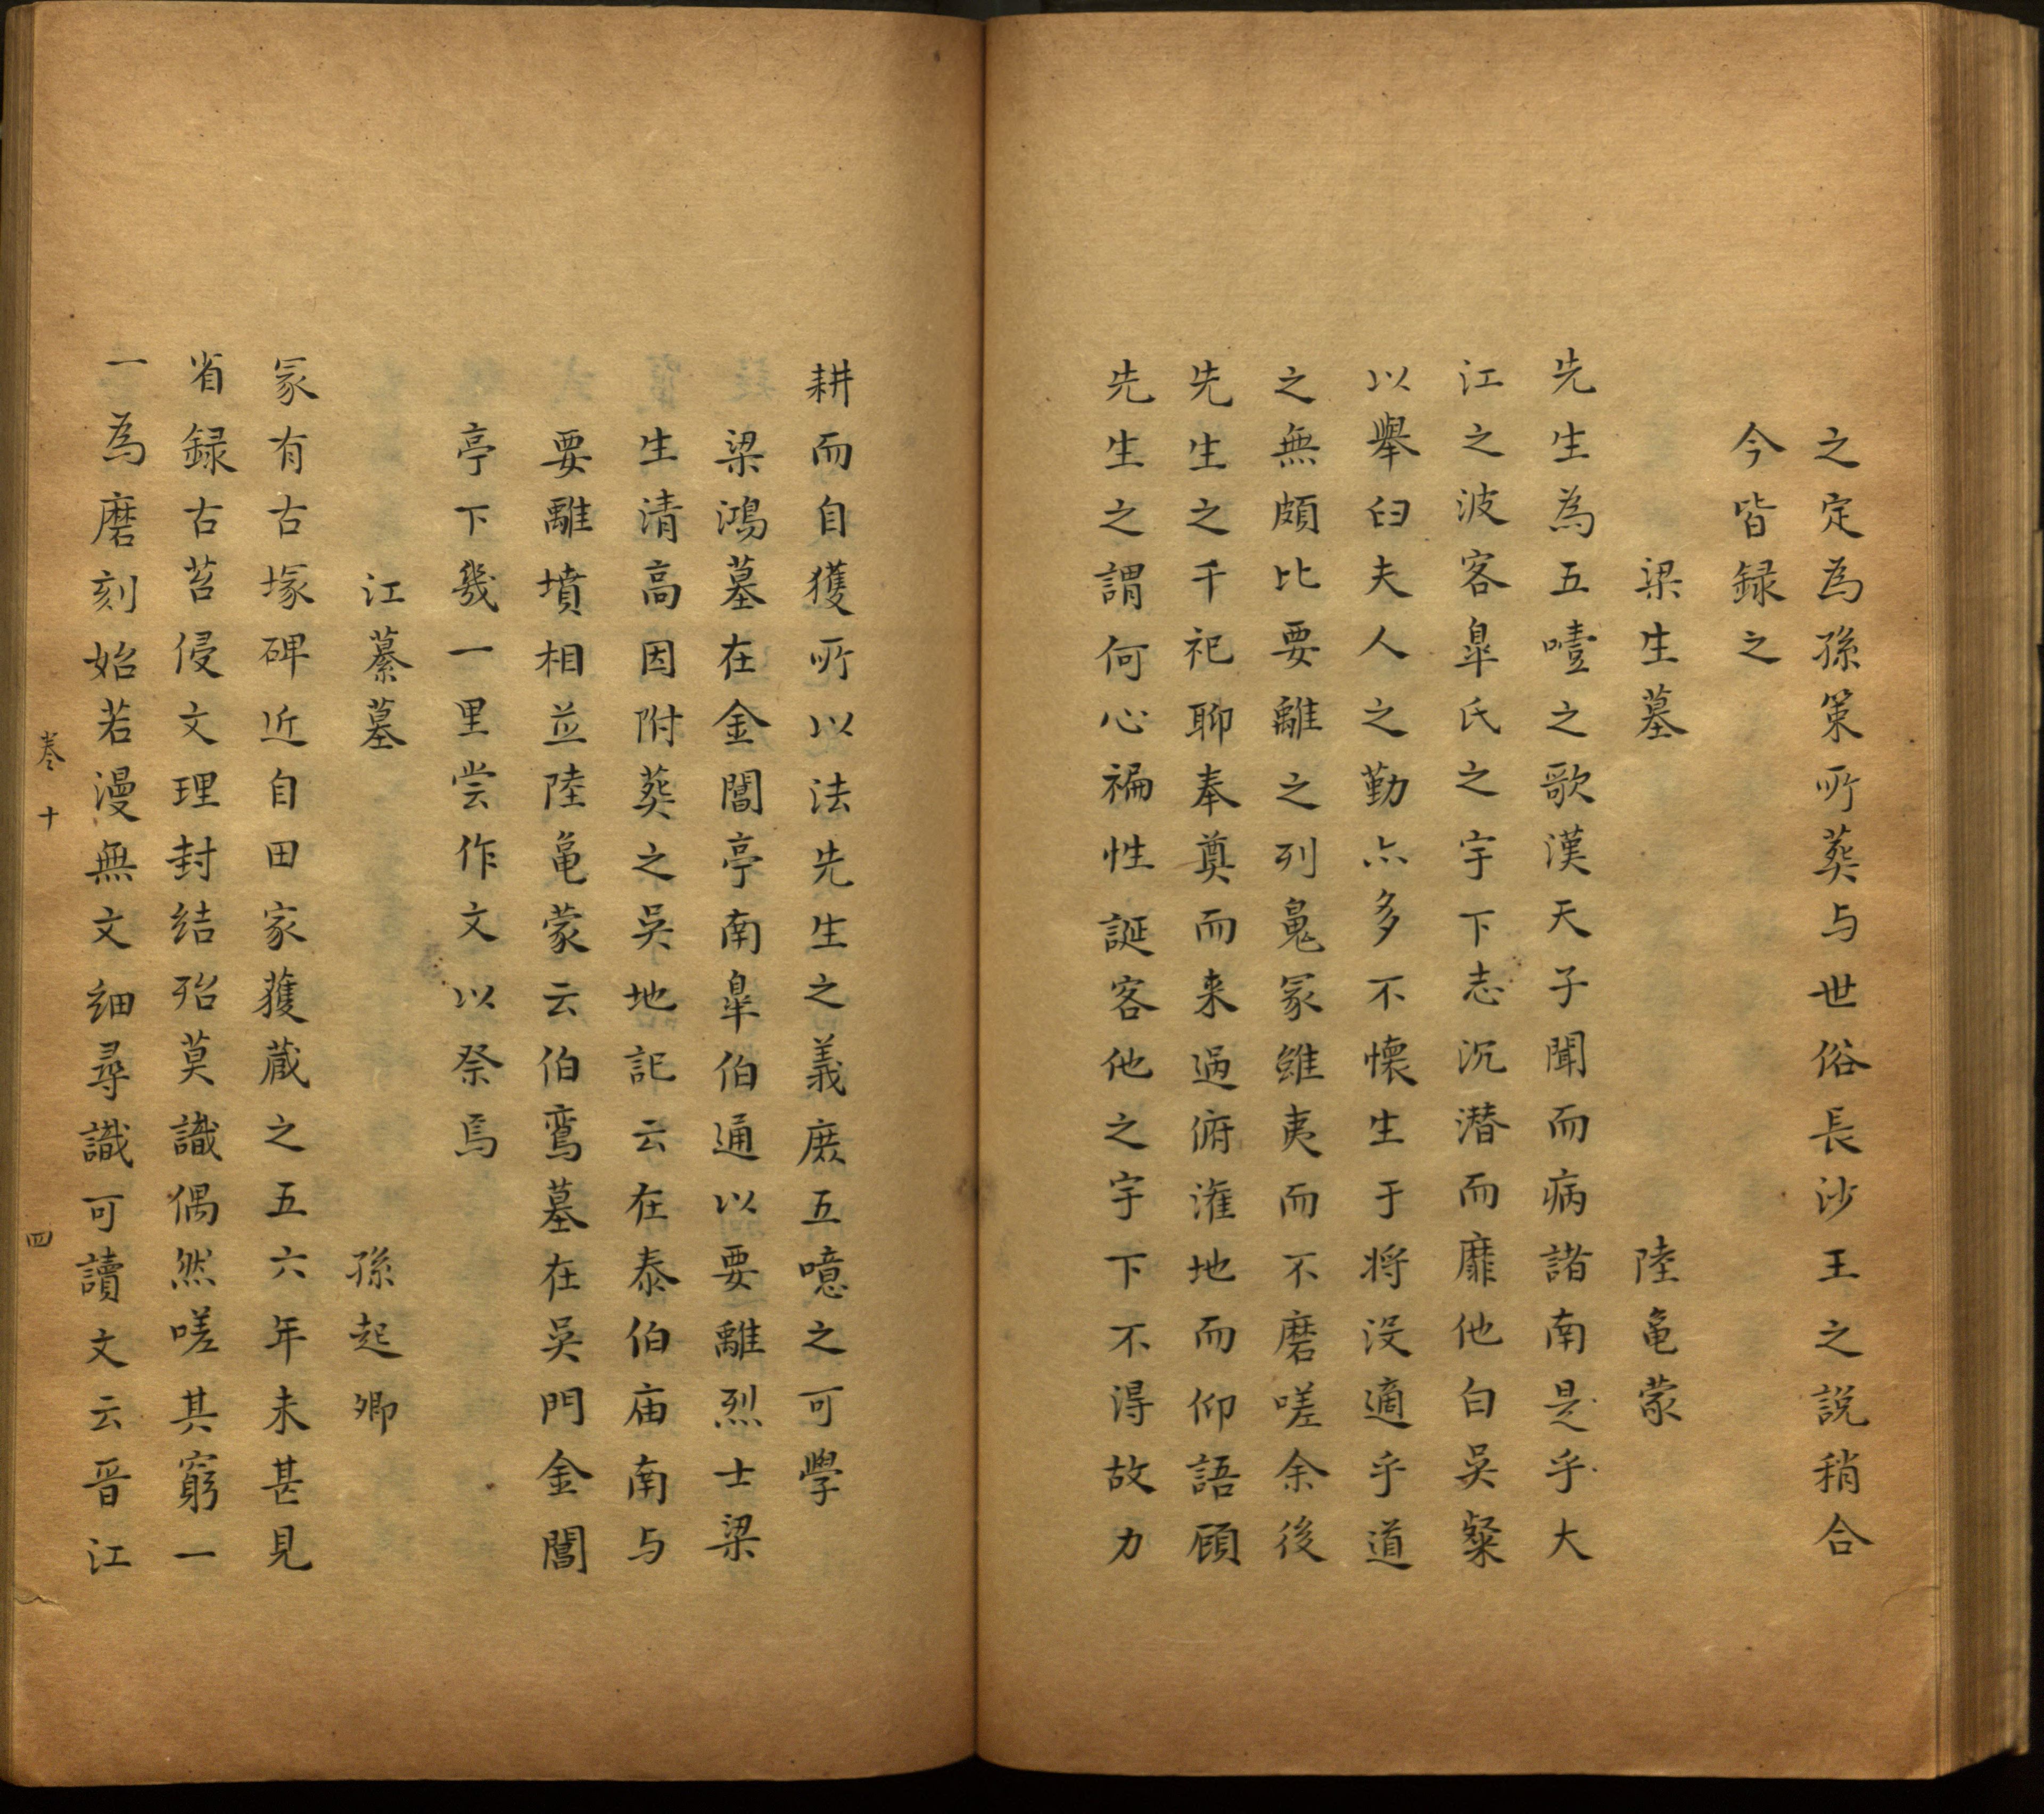 之定為孫策所葬与世俗長沙王之說稍合
今皆録之
梁生墓　陸亀蒙
先生為五噎之歌漢天子聞而病諸南是乎大
江之波客皐氏之宇下志沉潜而靡他白吳粲
以舉臼夫人之勤亦多不懐生于将没適乎道
之無頗比要離之列鬼冢雖夷而不磨嗟余後
先生之千祀聊奉奠而来過俯潅地而仰語顧
先生之謂何心褊性誕客他之宇下不得故力
耕而自獲所以法先生之義庶五噫之可學
梁鴻墓在金閶亭南皐伯通以要離烈士梁
生清高因附葬之吳地記云在泰伯庙南与
要離墳相並陸亀蒙云伯鸞墓在吳門金閶
亭下幾一里尝作文以祭焉
江纂墓　孫起卿
冢有古塚碑近自田家獲蔵之五六年未甚見
省録古苔侵文理封结殆莫識偶然嗟其窮一
一為磨刻始若漫無文細尋識可讀文云晋江
卷十　四